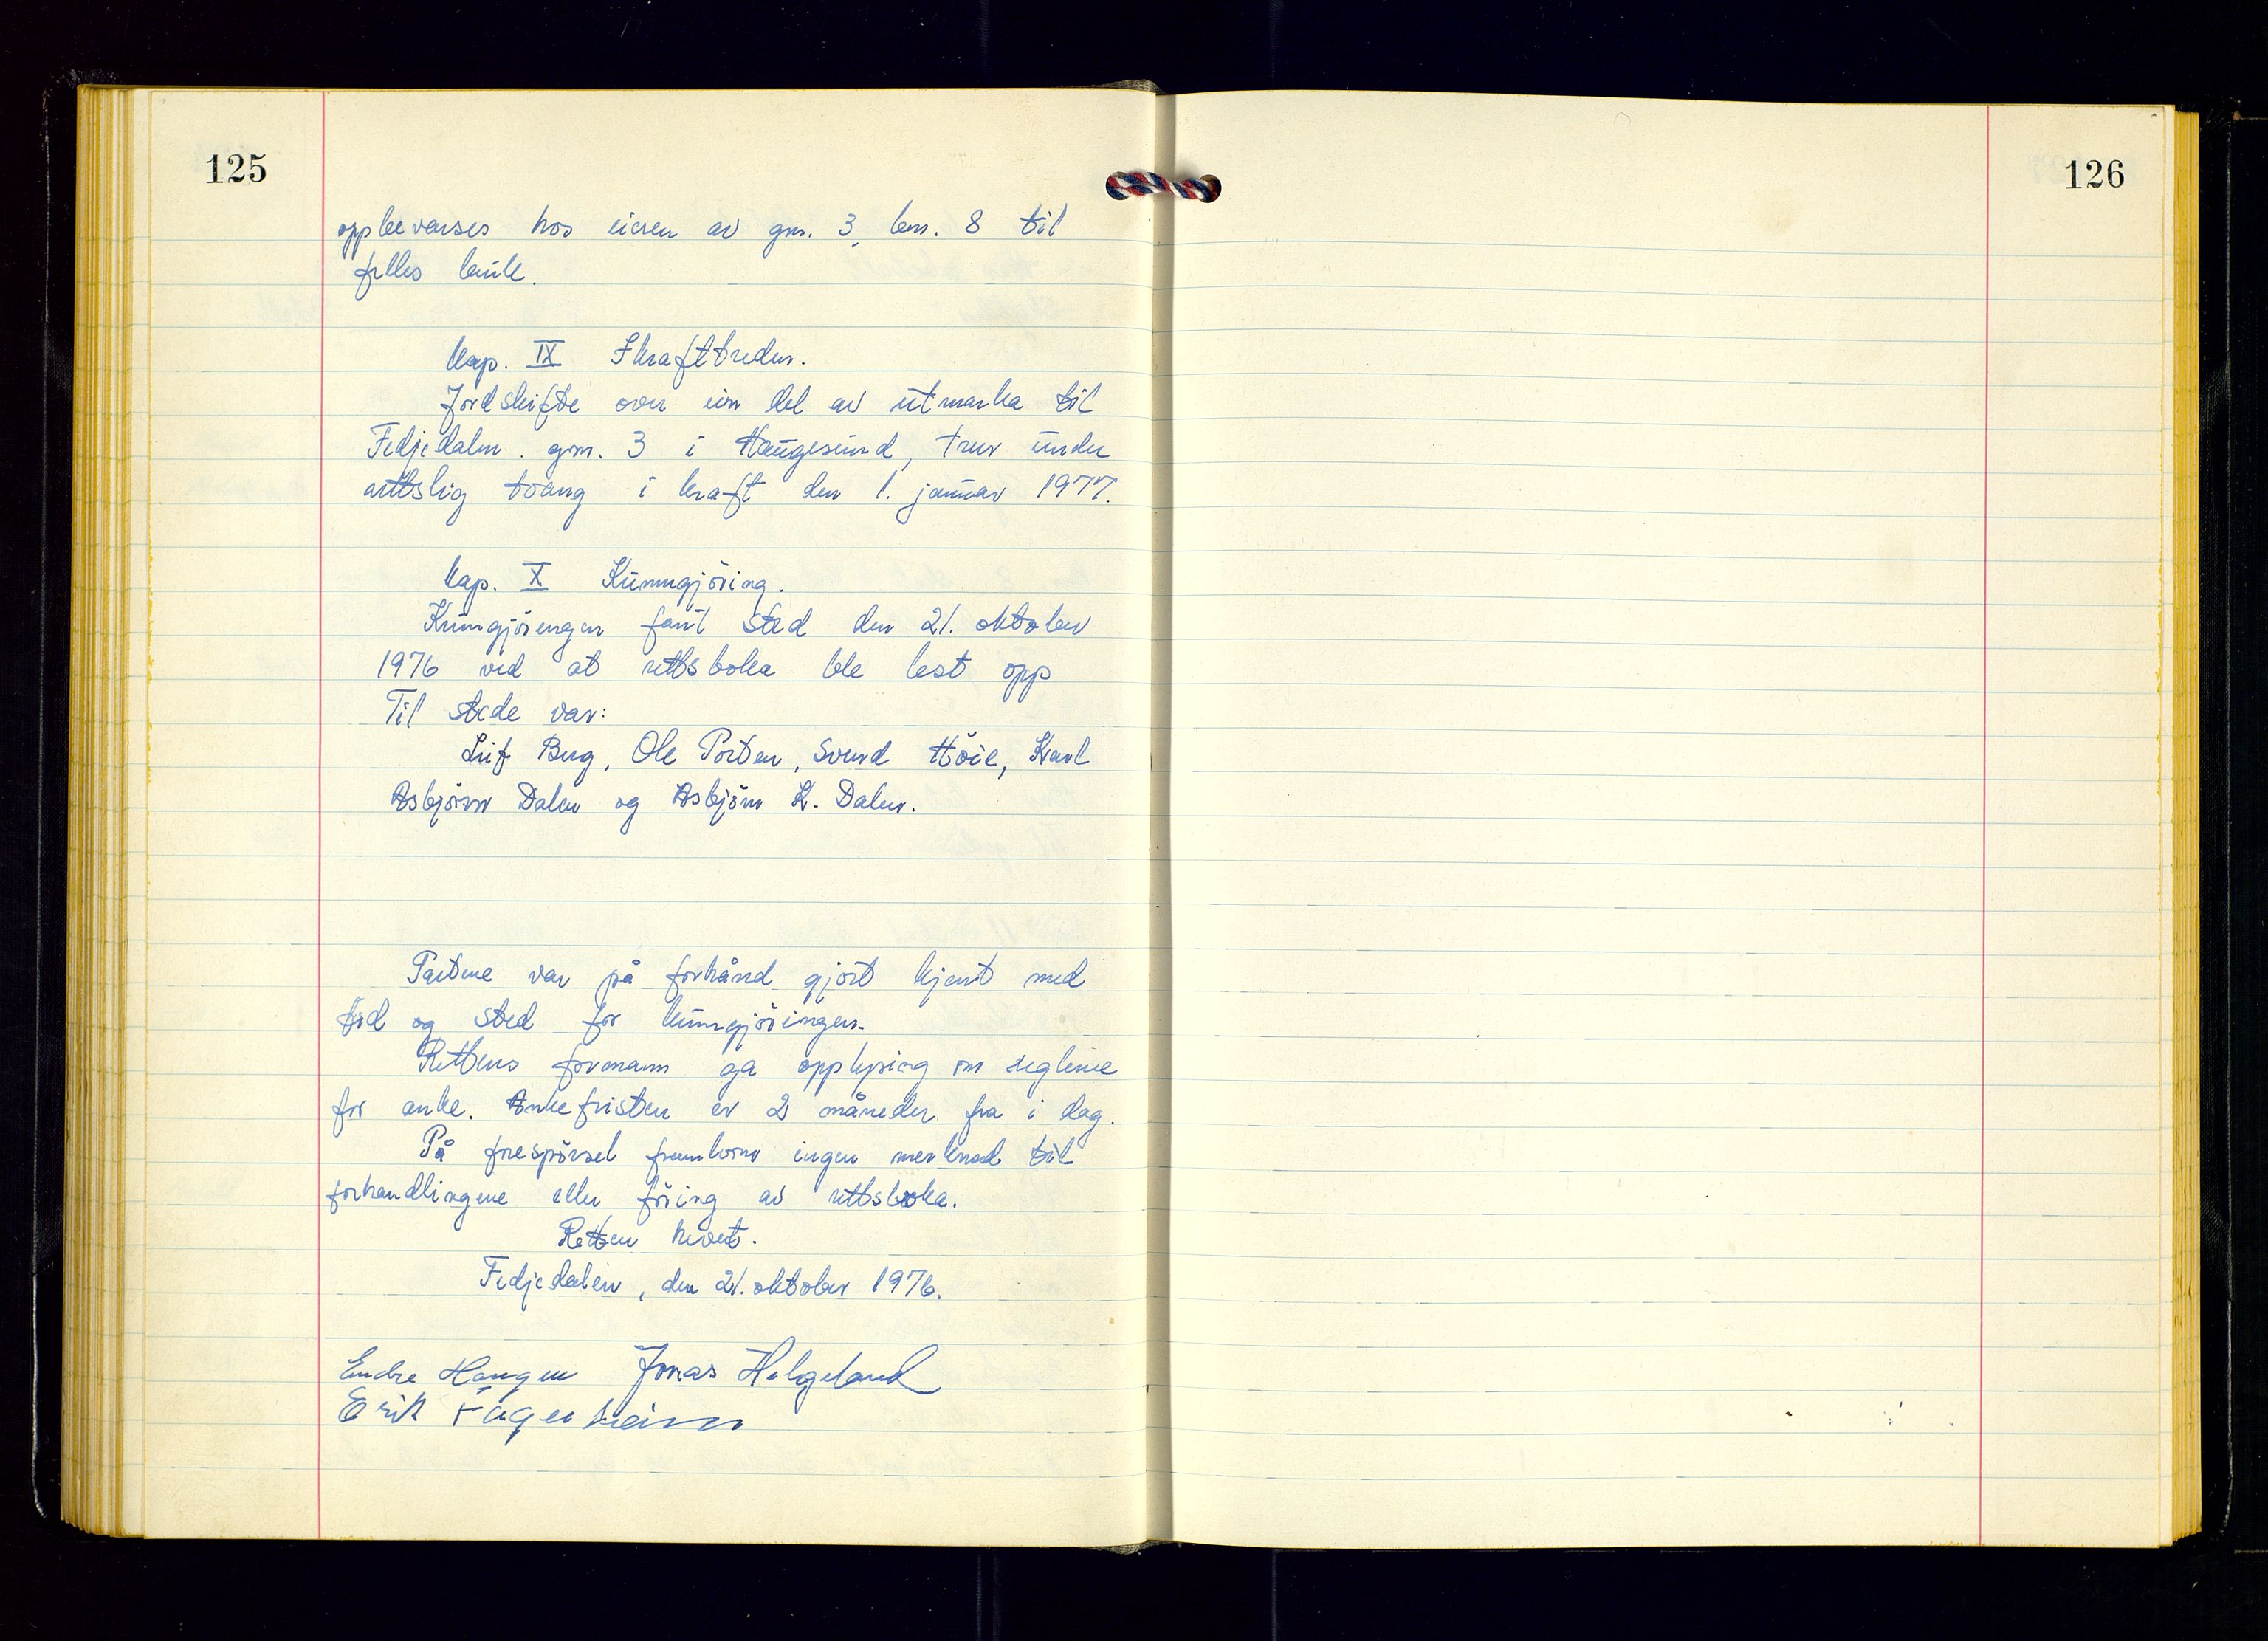 125
oppbevarses hos eieren av gnr. 3, bnr. 8 til
felles bruk.
Kap. IX Ikrafttreden.
Jordskifte over ein del av utmarka til
Fedjedalen. gnr. 3 i Haugesund, trer under
rettslig tvang i kraft den 1. januar 1977.
Kap. X Kunngjöring.
Kunngjöringen fant sted den 21. oktober
1976 ved at rettsboka ble lest opp
Til stede var:
Leif Berg, Ole Porten, Svend Höie, Karl
Asbjörn Dalen og Asbjörn K. Dalen.
Partene var på forhånd gjort kjent med
tid og sted for kunngjöringen.
Rettens formann ga opplysing om reglene
for anke. Ankefristen er 2 måneder fra i dag.
På forespörsel framkom ingen merknad til
forhandlingene eller föring av rettsboka.
Retten hevet.
Fedjedalen, den 21. oktober 1976.
Endre Haugen Jonas Helgeland
Erik Fagerheim
126